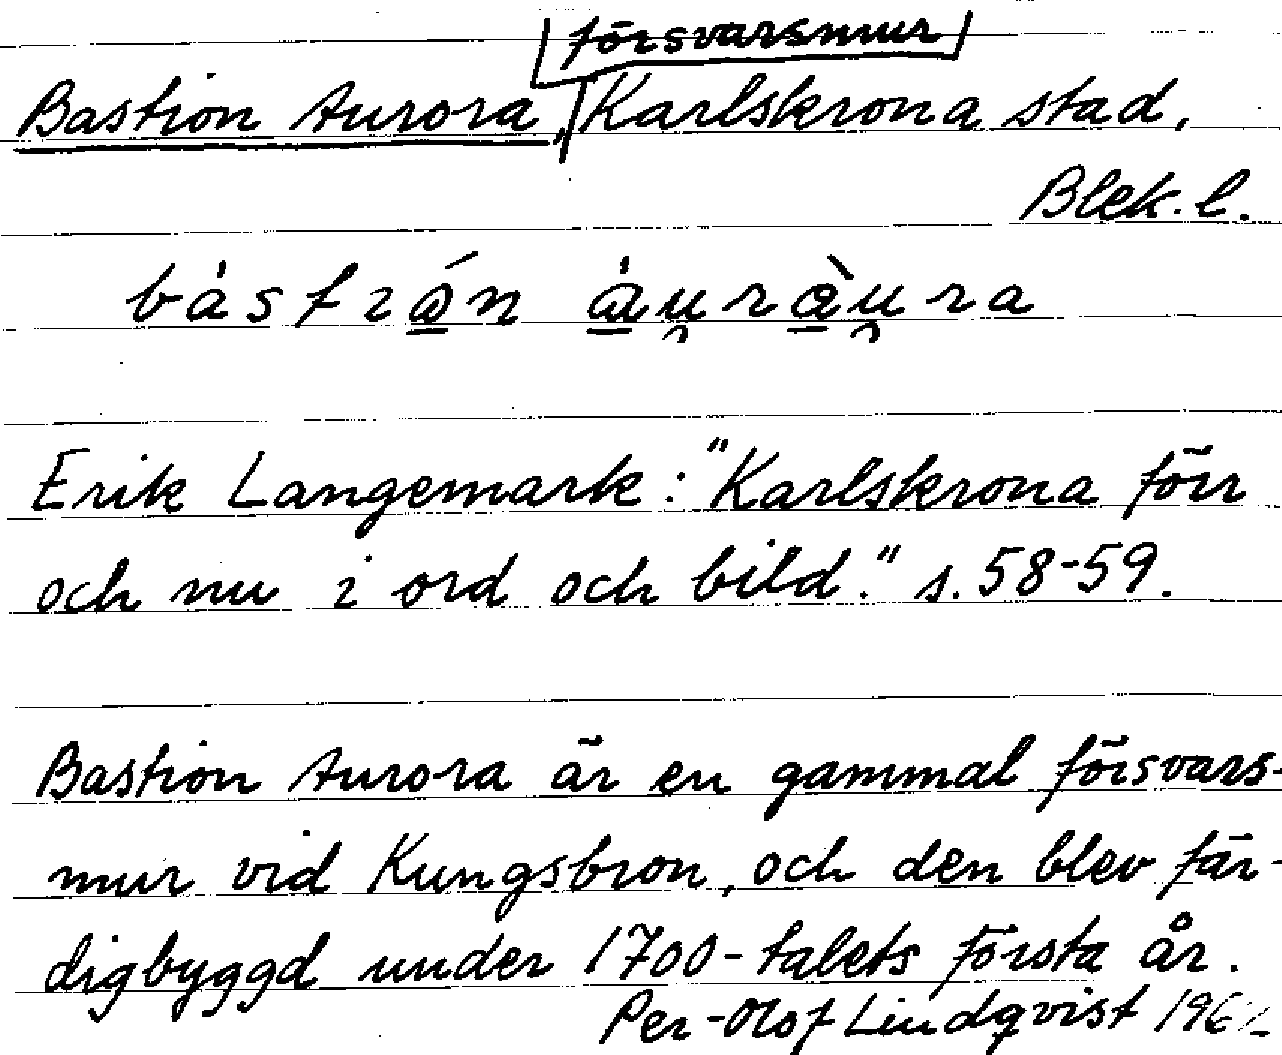 försvarsmur
Bastion Aurora, Karlskrona stad,
Blek. l.
Erik Langemark: "Karlskrona förr
och nu i ord och bild." s. 58-59.
Bastion Aurora är en gammal försvars-
mur vid Kungsbron, och den blev fär-
digbyggd under 1700-talets första år.
Per-Olof Lindqvist